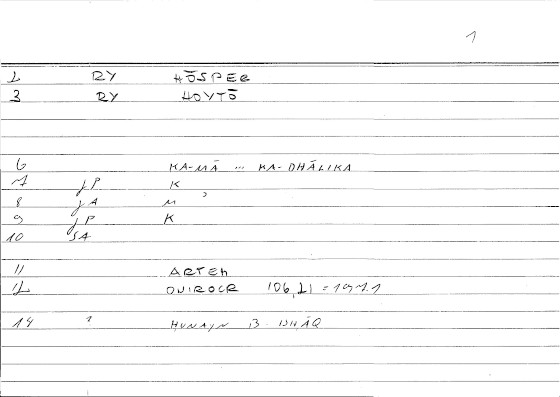 1
1 RY HŌSPER
3 RY HOYTŌ
6 KA-MĀ ... KA-DHĀLIKA
7 JP K
8 JA M
9 JP K
10 SA
11 ARTEM
12 ONIROCR 106,21 = 197.1
14 1 HUNAYN B. ISHĀQ